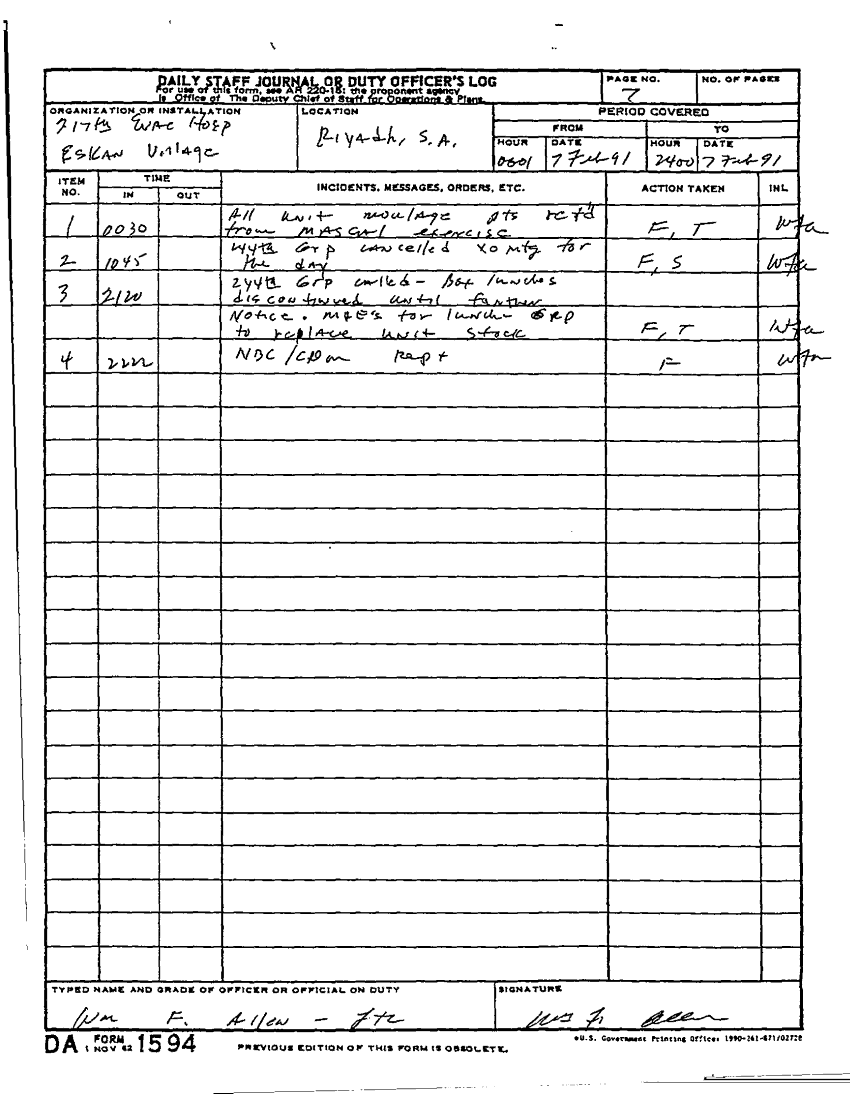 DAILY STAFF JOURNAL OR DUTY OFFICER'S LOG
For use of this form, see AR 220-15; the proponent agency
is Office of The Deputy Chief of Staff for Operations & Plans.
PAGE NO.
7
NO. OF PAGES
ORGANIZATION OR INSTALLATION
217th Evac Hosp
ESKAN Village
LOCATION
Riyadh, S.A.
PERIOD COVERED
FROM
TO
HOUR
DATE
HOUR
DATE
0001
7 Feb 91
2400
7 Feb 91
ITEM NO.
TIME
IN
OUT
INCIDENTS, MESSAGES, ORDERS, ETC.
ACTION TAKEN
INL
1 0030 All unit moulage pts rct'd
from MASCAL exercise F, T Wfa
2 1045 244th Grp cancelled XO mtg for
the day F, S Wfa
3 2120 244th Grp called - Box lunches
discontinued until further
Notice. MREs for lunch GRP
to replace unit stock F, T Wfa
4 2222 NBC / Rept F Wfa
TYPED NAME AND GRADE OF OFFICER OR OFFICIAL ON DUTY
Wm F. Allen -
SIGNATURE
Allen
DA FORM 1594
1 NOV 62
PREVIOUS EDITION OF THIS FORM IS OBSOLETE.
*U.S. Government Printing Office: 1990-261-871/02728